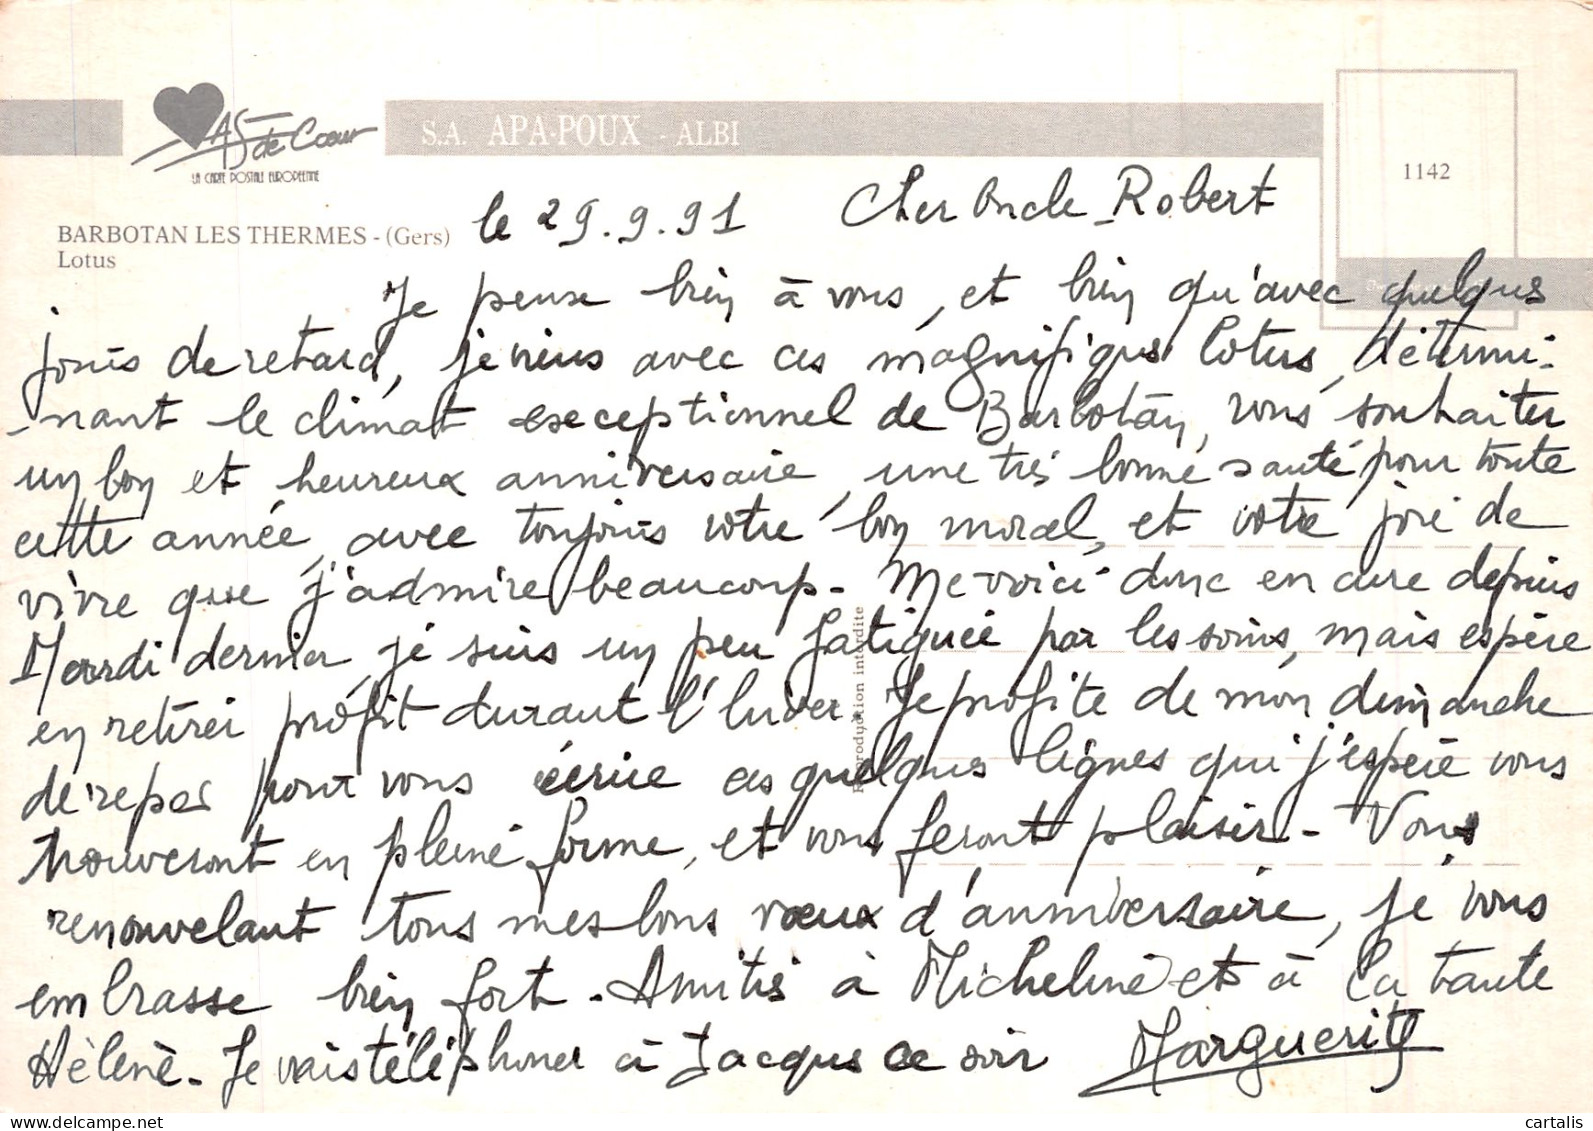 AS de Coeur
LA CARTE POSTALE EUROPÉENNE
S.A. APA-POUX - ALBI
1142
BARBOTAN LES THERMES - (Gers)
Lotus
le 29.9.91 Cher Oncle Robert
Je pense bien à vous, et bien qu'avec quelques
jours de retard, je viens avec ces magnifiques lotus, détermi-
-nant le climat exceptionnel de Barbotan, vous souhaiter
un bon et heureux anniversaire, une très bonne santé pour toute
cette année, avec toujours votre bon moral, et votre joie de
vivre que j'admire beaucoup - Me voici donc en cure depuis
Mardi dernier, je suis un peu fatiguée par les soins, mais espère
en retirer profit durant l'hiver. Je profite de mon dimanche
de repos pour vous écrire ces quelques lignes qui j'espère vous
trouveront en pleine forme, et vous feront plaisir - Vous
renouvelant tous mes bons vœux d'anniversaire, je vous
embrasse bien fort. Amitiés à Micheline et à la tante
Hélène - Je vais téléphoner à Jacques ce soir Marguerite
Reproduction interdite
cartalis
www.delcampe.net